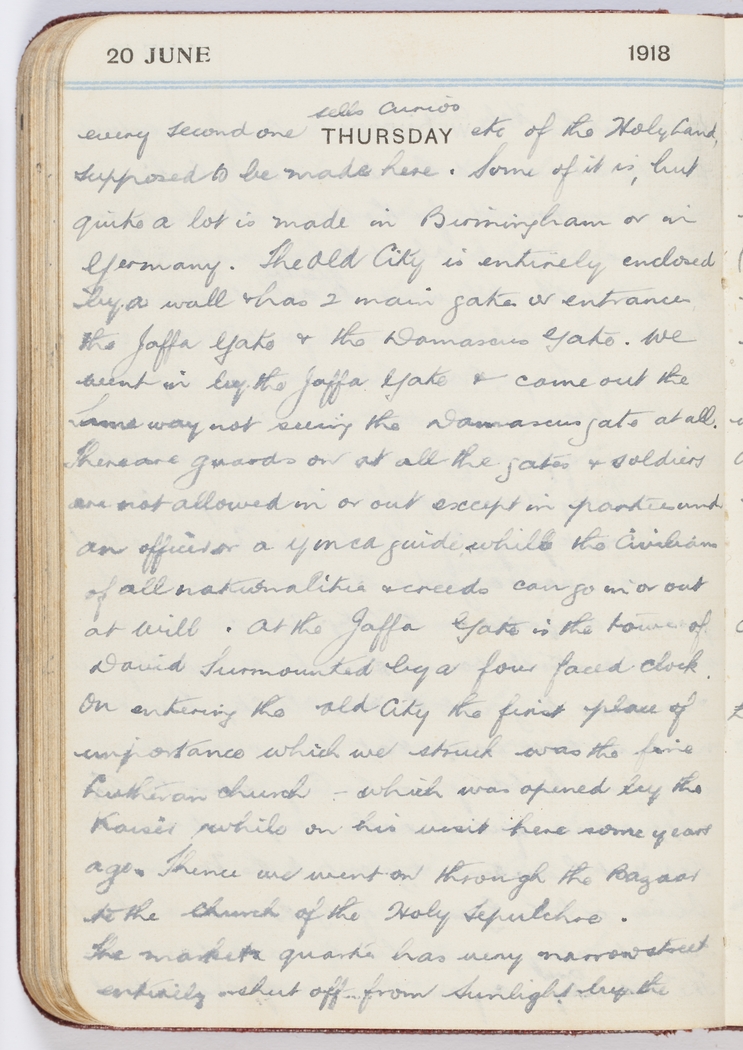 20 JUNE 1918
sells Curios
every second one THURSDAY etc of the Holy Land,
supposed to be made here. Some of it is, but
quite a lot is made in Birmingham or in
Germany. The Old City is entirely enclosed
by a wall & has 2 main gates or entrances
the Jaffa Gate & the Damascus Gate. We
went in by the Jaffa Gate & came out the
same way not seeing the Damascus gate at all.
There are guards on at all the gates & soldiers
are not allowed in or out except in parties under
an officer or a ymca guide, while the Civilians
of all nationalities & creeds can go in or out
at will. At the Jaffa Gate is the tower of
David surmounted by a four faced clock.
On entering the old City the first place of
importance which we struck was the fine
Lutheran church - which was opened by the
Kaiser while on his visit here some years
ago. Thence we went on through the Bazaar
to the Church of the Holy Sepulchre.
The markets quarter has very narrow street
entirely shut off from sunlight by the